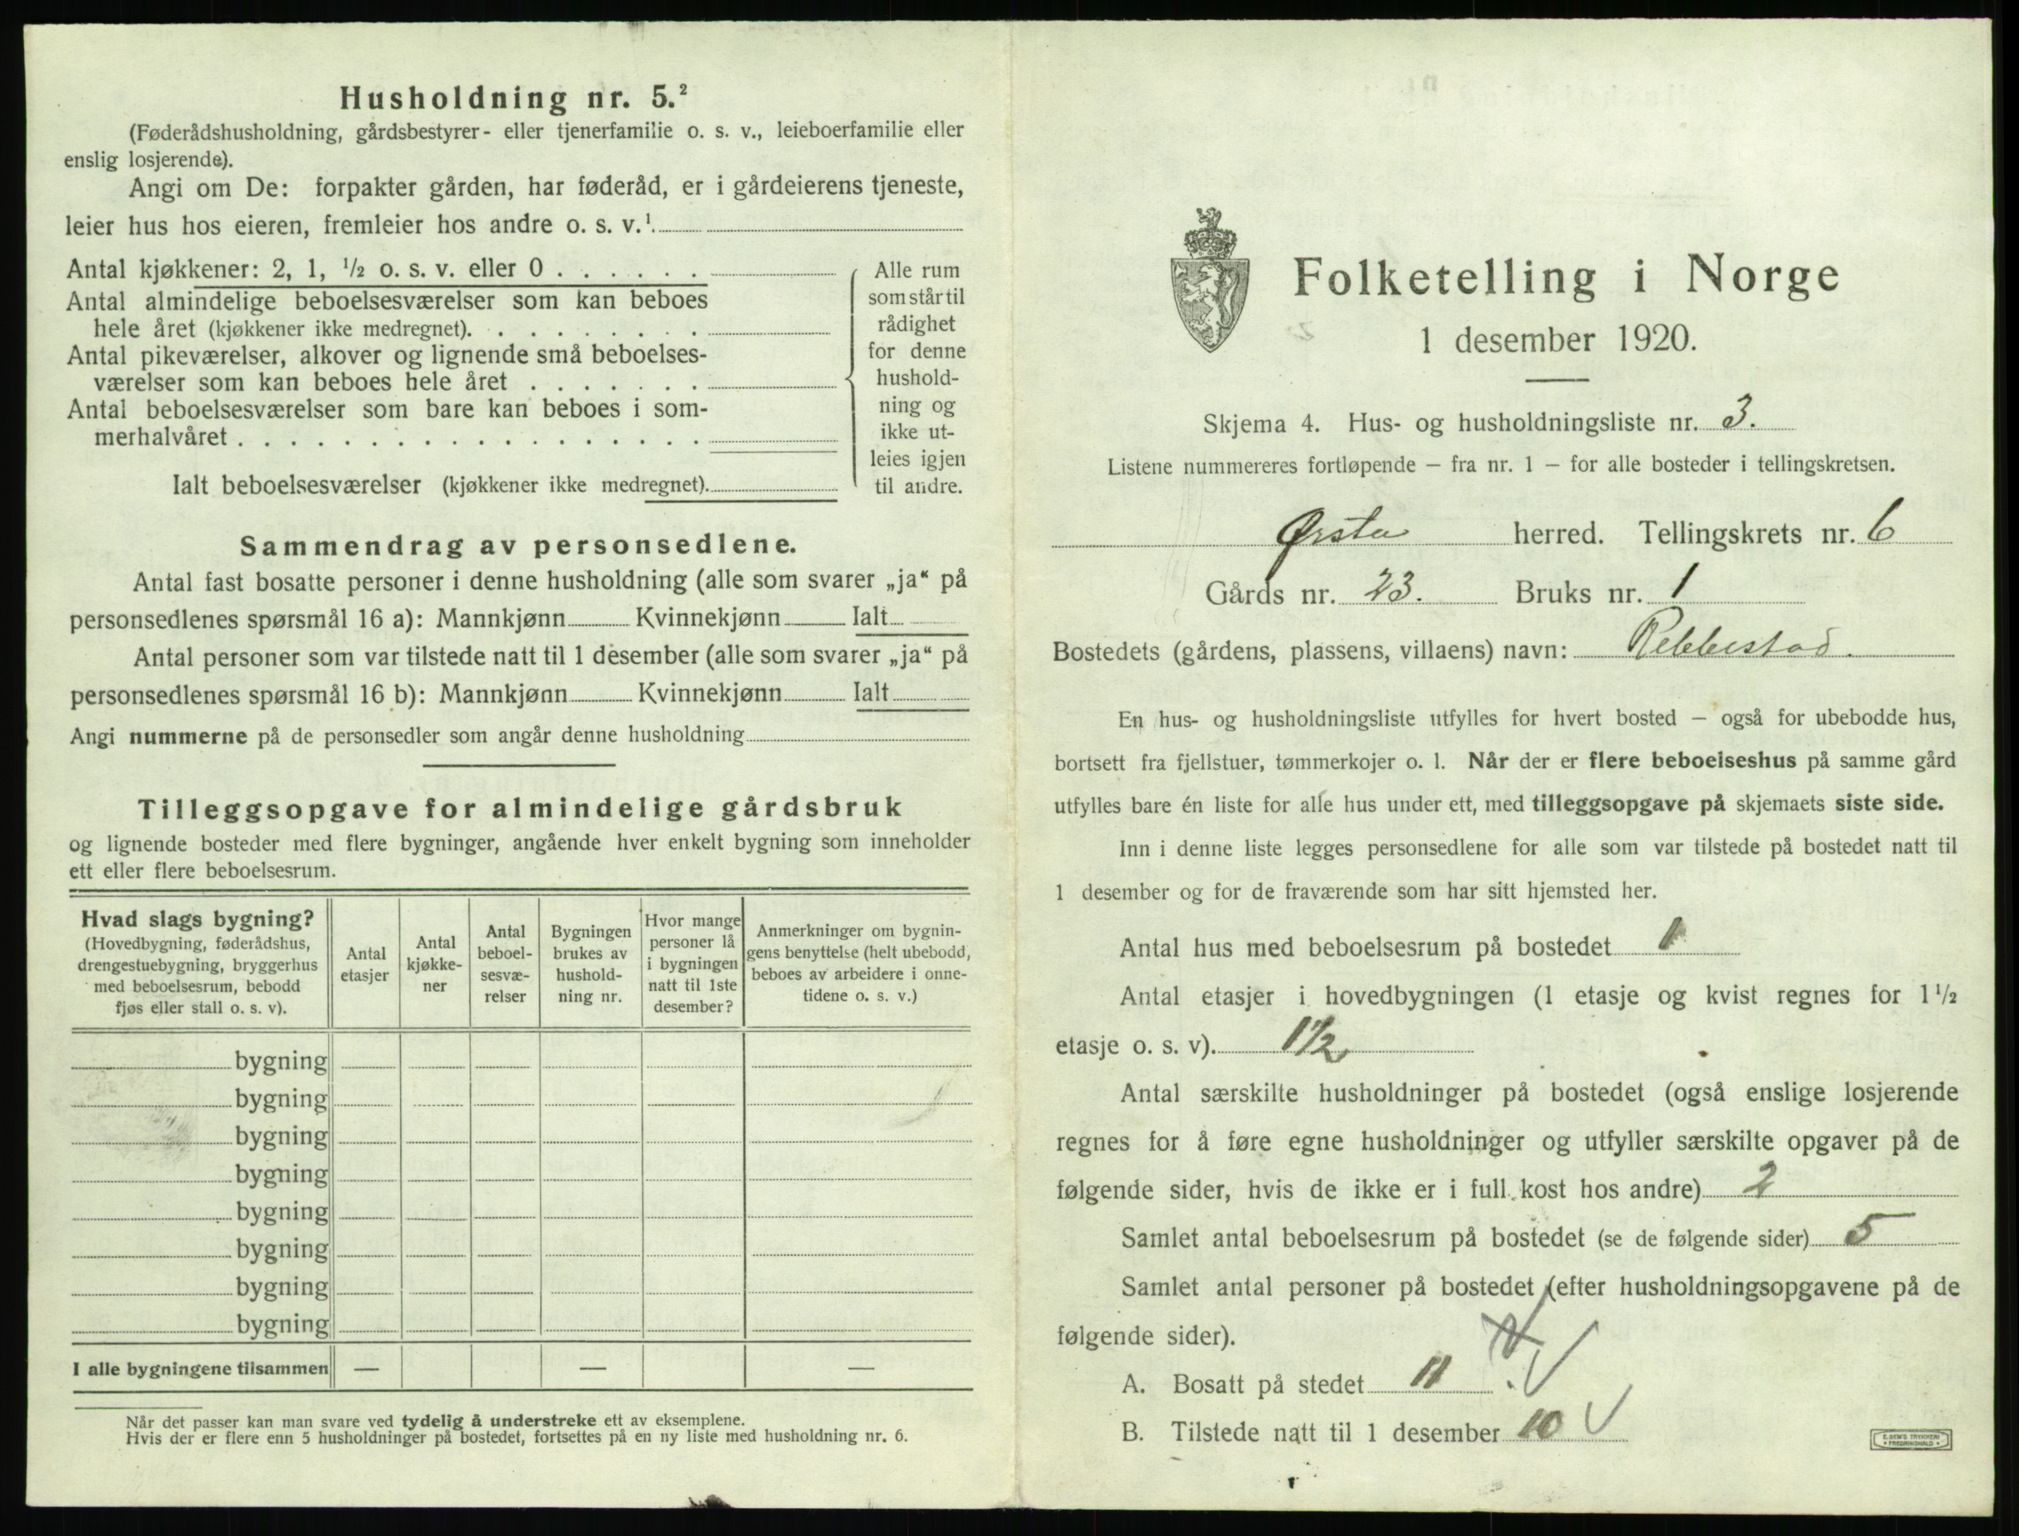 Husholdning nr. 5.²
(Føderådshusholdning, gårdsbestyrer- eller tjenerfamilie o. s. v., leieboerfamilie eller
enslig losjerende).
Angi om De: forpakter gården, har føderåd, er i gårdeierens tjeneste,
leier hus hos eieren, fremleier hos andre o. s. v.¹
Antal kjøkkener: 2, 1, ½ o. s. v. eller 0 . . . . . .
Antal almindelige beboelsesværelser som kan beboes
hele året (kjøkkener ikke medregnet). . . . . . . . .
Antal pikeværelser, alkover og lignende små beboelses-
værelser som kan beboes hele året . . . . . . .
Antal beboelsesværelser som bare kan beboes i som-
merhalvåret . . . . . . . . . . . . . . . . . .
Ialt beboelsesværelser (kjøkkener ikke medregnet).
Alle rum
som står til
rådighet
for denne
hushold-
ning og
ikke ut-
leies igjen
til andre.
Sammendrag av personsedlene.
Antal fast bosatte personer i denne husholdning (alle som svarer „ja“ på
personsedlenes spørsmål 16 a): Mannkjønn Kvinnekjønn Ialt
Antal personer som var tilstede natt til 1 desember (alle som svarer „ja“ på
personsedlenes spørsmål 16 b): Mannkjønn Kvinnekjønn Ialt
Angi nummerne på de personsedler som angår denne husholdning
Tilleggsopgave for almindelige gårdsbruk
og lignende bosteder med flere bygninger, angående hver enkelt bygning som inneholder
ett eller flere beboelsesrum.
Hvad slags bygning?
(Hovedbygning, føderådshus,
drengestuebygning, bryggerhus
med beboelsesrum, bebodd
fjøs eller stall o. s. v).
Antal
etasjer
Antal
kjøkke-
ner
Antal
beboel-
sesvæ-
relser
Bygningen
brukes av
hushold-
ning nr.
Hvor mange
personer lå
i bygningen
natt til 1ste
desember?
Anmerkninger om bygnin-
gens benyttelse (helt ubebodd,
beboes av arbeidere i onne-
tidene o. s. v.)
bygning
bygning
bygning
bygning
bygning
bygning
bygning
bygning
I alle bygningene tilsammen — — —
Når det passer kan man svare ved tydelig å understreke ett av eksemplene.
Hvis der er flere enn 5 husholdninger på bostedet, fortsettes på en ny liste med husholdning nr. 6.
Folketelling i Norge
1 desember 1920.
Skjema 4. Hus- og husholdningsliste nr. 3.
Listene nummereres fortløpende – fra nr. 1 – for alle bosteder i tellingskretsen.
Ørsta herred. Tellingskrets nr. 6
Gårds nr. 23. Bruks nr. 1
Bostedets (gårdens, plassens, villaens) navn: Rebbestad.
En hus- og husholdningsliste utfylles for hvert bosted – også for ubebodde hus,
bortsett fra fjellstuer, tømmerkojer o. l. Når der er flere beboelseshus på samme gård
utfylles bare én liste for alle hus under ett, med tilleggsopgave på skjemaets siste side.
Inn i denne liste legges personsedlene for alle som var tilstede på bostedet natt til
1 desember og for de fraværende som har sitt hjemsted her.
Antal hus med beboelsesrum på bostedet 1
Antal etasjer i hovedbygningen (1 etasje og kvist regnes for 1½
etasje o. s. v). 1½
Antal særskilte husholdninger på bostedet (også enslige losjerende
regnes for å føre egne husholdninger og utfyller særskilte opgaver på de
følgende sider, hvis de ikke er i full kost hos andre) 2
Samlet antal beboelsesrum på bostedet (se de følgende sider) 5
Samlet antal personer på bostedet (efter husholdningsopgavene på de
følgende sider).
A. Bosatt på stedet 11
B. Tilstede natt til 1 desember 10
E. SEM'S TRYKKERI
FREDRIKSHALD